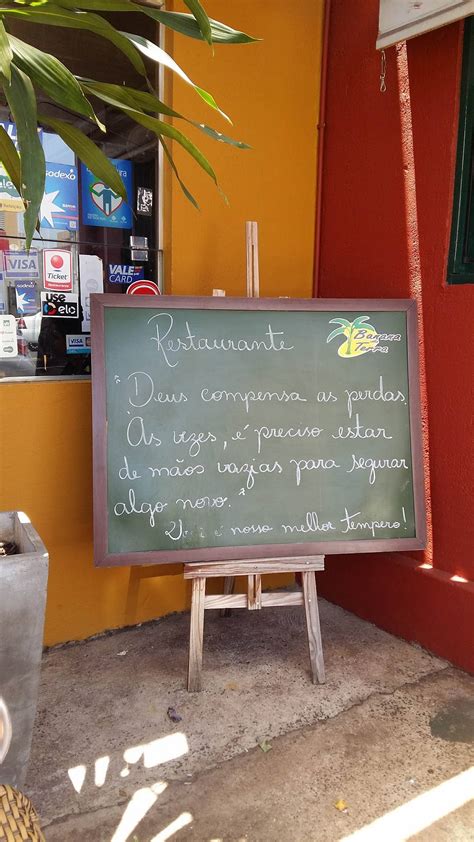 Restaurante
Banana
Terra
"Deus compensa as perdas.
Às vezes, é preciso estar
de mãos vazias para segurar
algo novo."
é nosso melhor tempero!
sodexo
sodexo
VISA
Ticket
VALE
CARD
USE
elo
VISA